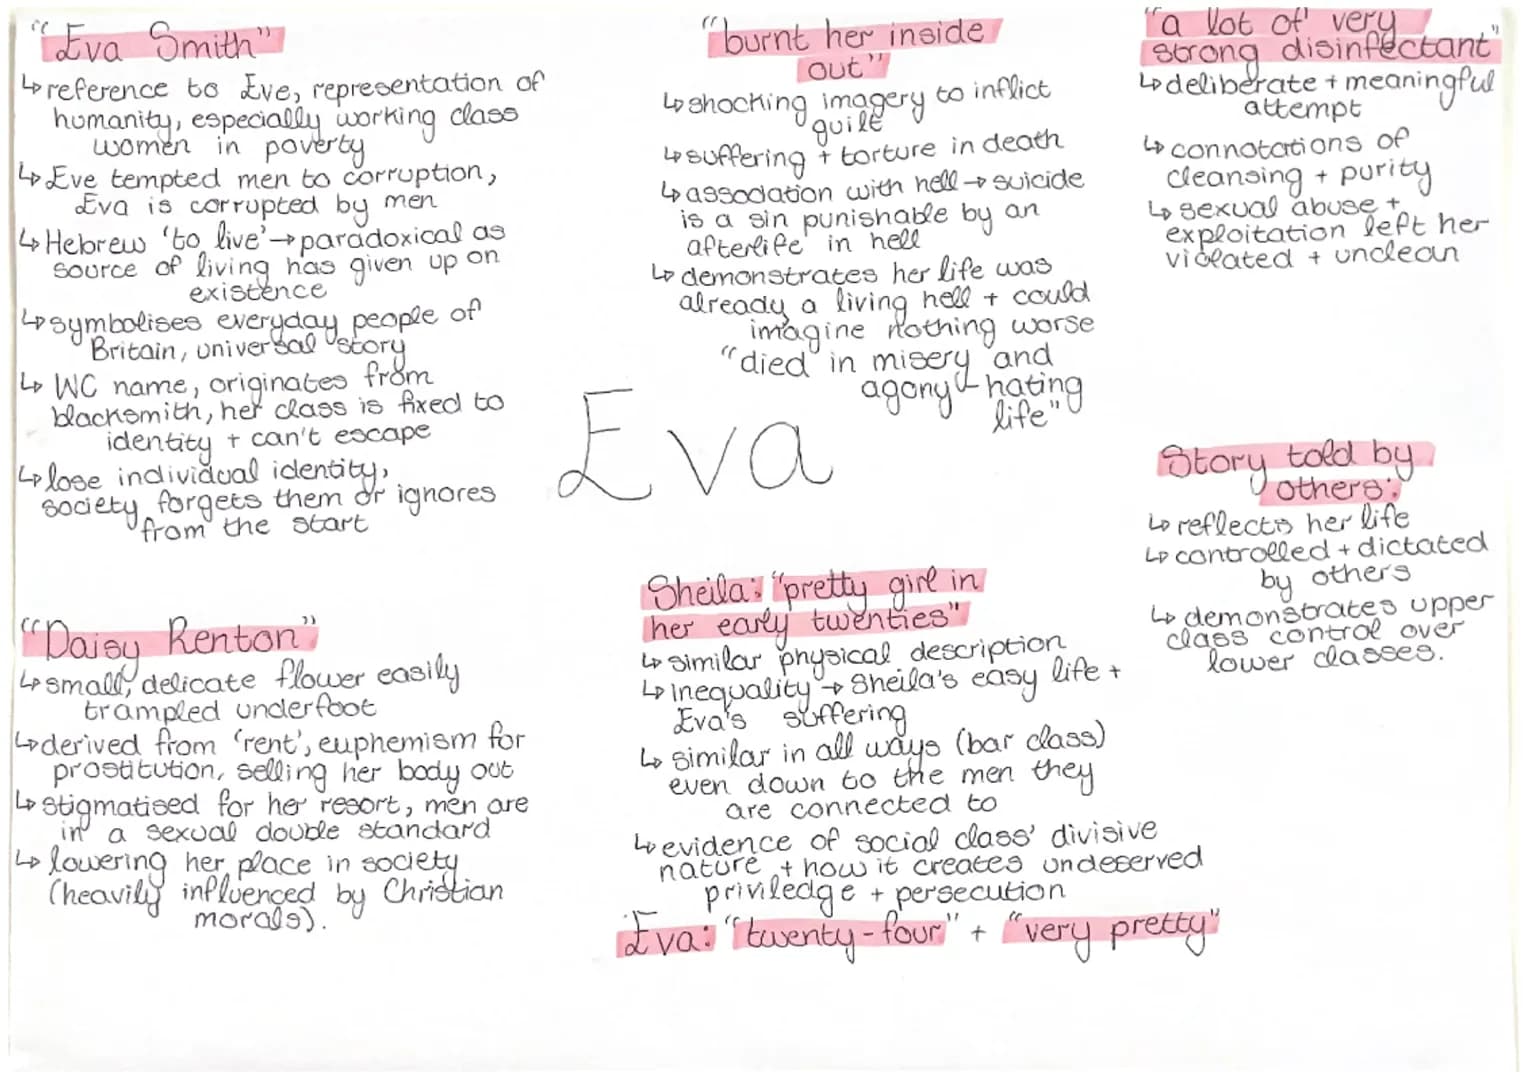 "Eva Smith"
↳ reference to Eve, representation of
humanity, especially working class
women in poverty
↳ Eve tempted men to corruption,
Eva is corrupted by men
↳ Hebrew 'to live' → paradoxical as
source of living has given up on
existence
↳ symbolises everyday people of
Britain, universal story
↳ WC name, originates from
blacksmith, her class is fixed to
identity + can't escape
↳ lose individual identity,
society forgets them or ignores
from the start
"Daisy Renton"
↳ small, delicate flower easily
trampled underfoot
↳ derived from 'rent', euphemism for
prostitution, selling her body out
↳ stigmatised for her resort, men are
in a sexual double standard
↳ lowering her place in society
(heavily influenced by Christian
morals).
Eva
"burnt her inside
out"
↳ shocking imagery to inflict
guilt
↳ suffering + torture in death
↳ association with hell → suicide
is a sin punishable by an
afterlife in hell
↳ demonstrates her life was
already a living hell + could
imagine nothing worse
"died in misery and
agony - hating
life"
Sheila: "pretty girl in
her early twenties"
↳ similar physical description
↳ inequality → Sheila's easy life +
Eva's suffering
↳ similar in all ways (bar class)
even down to the men they
are connected to
↳ evidence of social class' divisive
nature + how it creates undeserved
priviledge + persecution
Eva: "twenty-four" + "very pretty"
"a lot of very
strong disinfectant"
↳ deliberate + meaningful
attempt
↳ connotations of
cleansing + purity
↳ sexual abuse +
exploitation left her
violated + unclean
Story told by
others:
↳ reflects her life
↳ controlled + dictated
by others
↳ demonstrates upper
class control over
lower classes.